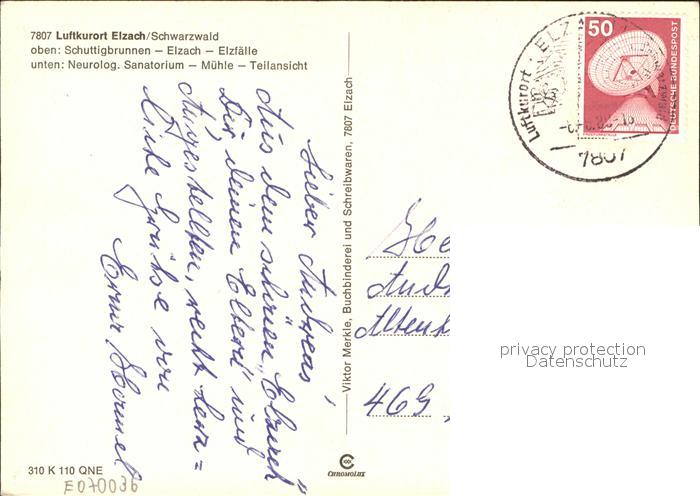 7807 Luftkurort Elzach/Schwarzwald
oben: Schuttigbrunnen – Elzach – Elzfälle
unten: Neurolog. Sanatorium – Mühle – Teilansicht
Lieber Andreas!
Aus dem schönen „Elzach"
Dir, deinen Eltern und
Angestellten, recht herz=
liche Grüße von
Erna
Viktor Merkle, Buchbinderei und Schreibwaren, 7807 Elzach
50
DEUTSCHE BUNDESPOST
Luftkurort ELZ
7807
He
And
Altenk
469
privacy protection
Datenschutz
310 K 110 QNE
E070036
CHROMOLUX